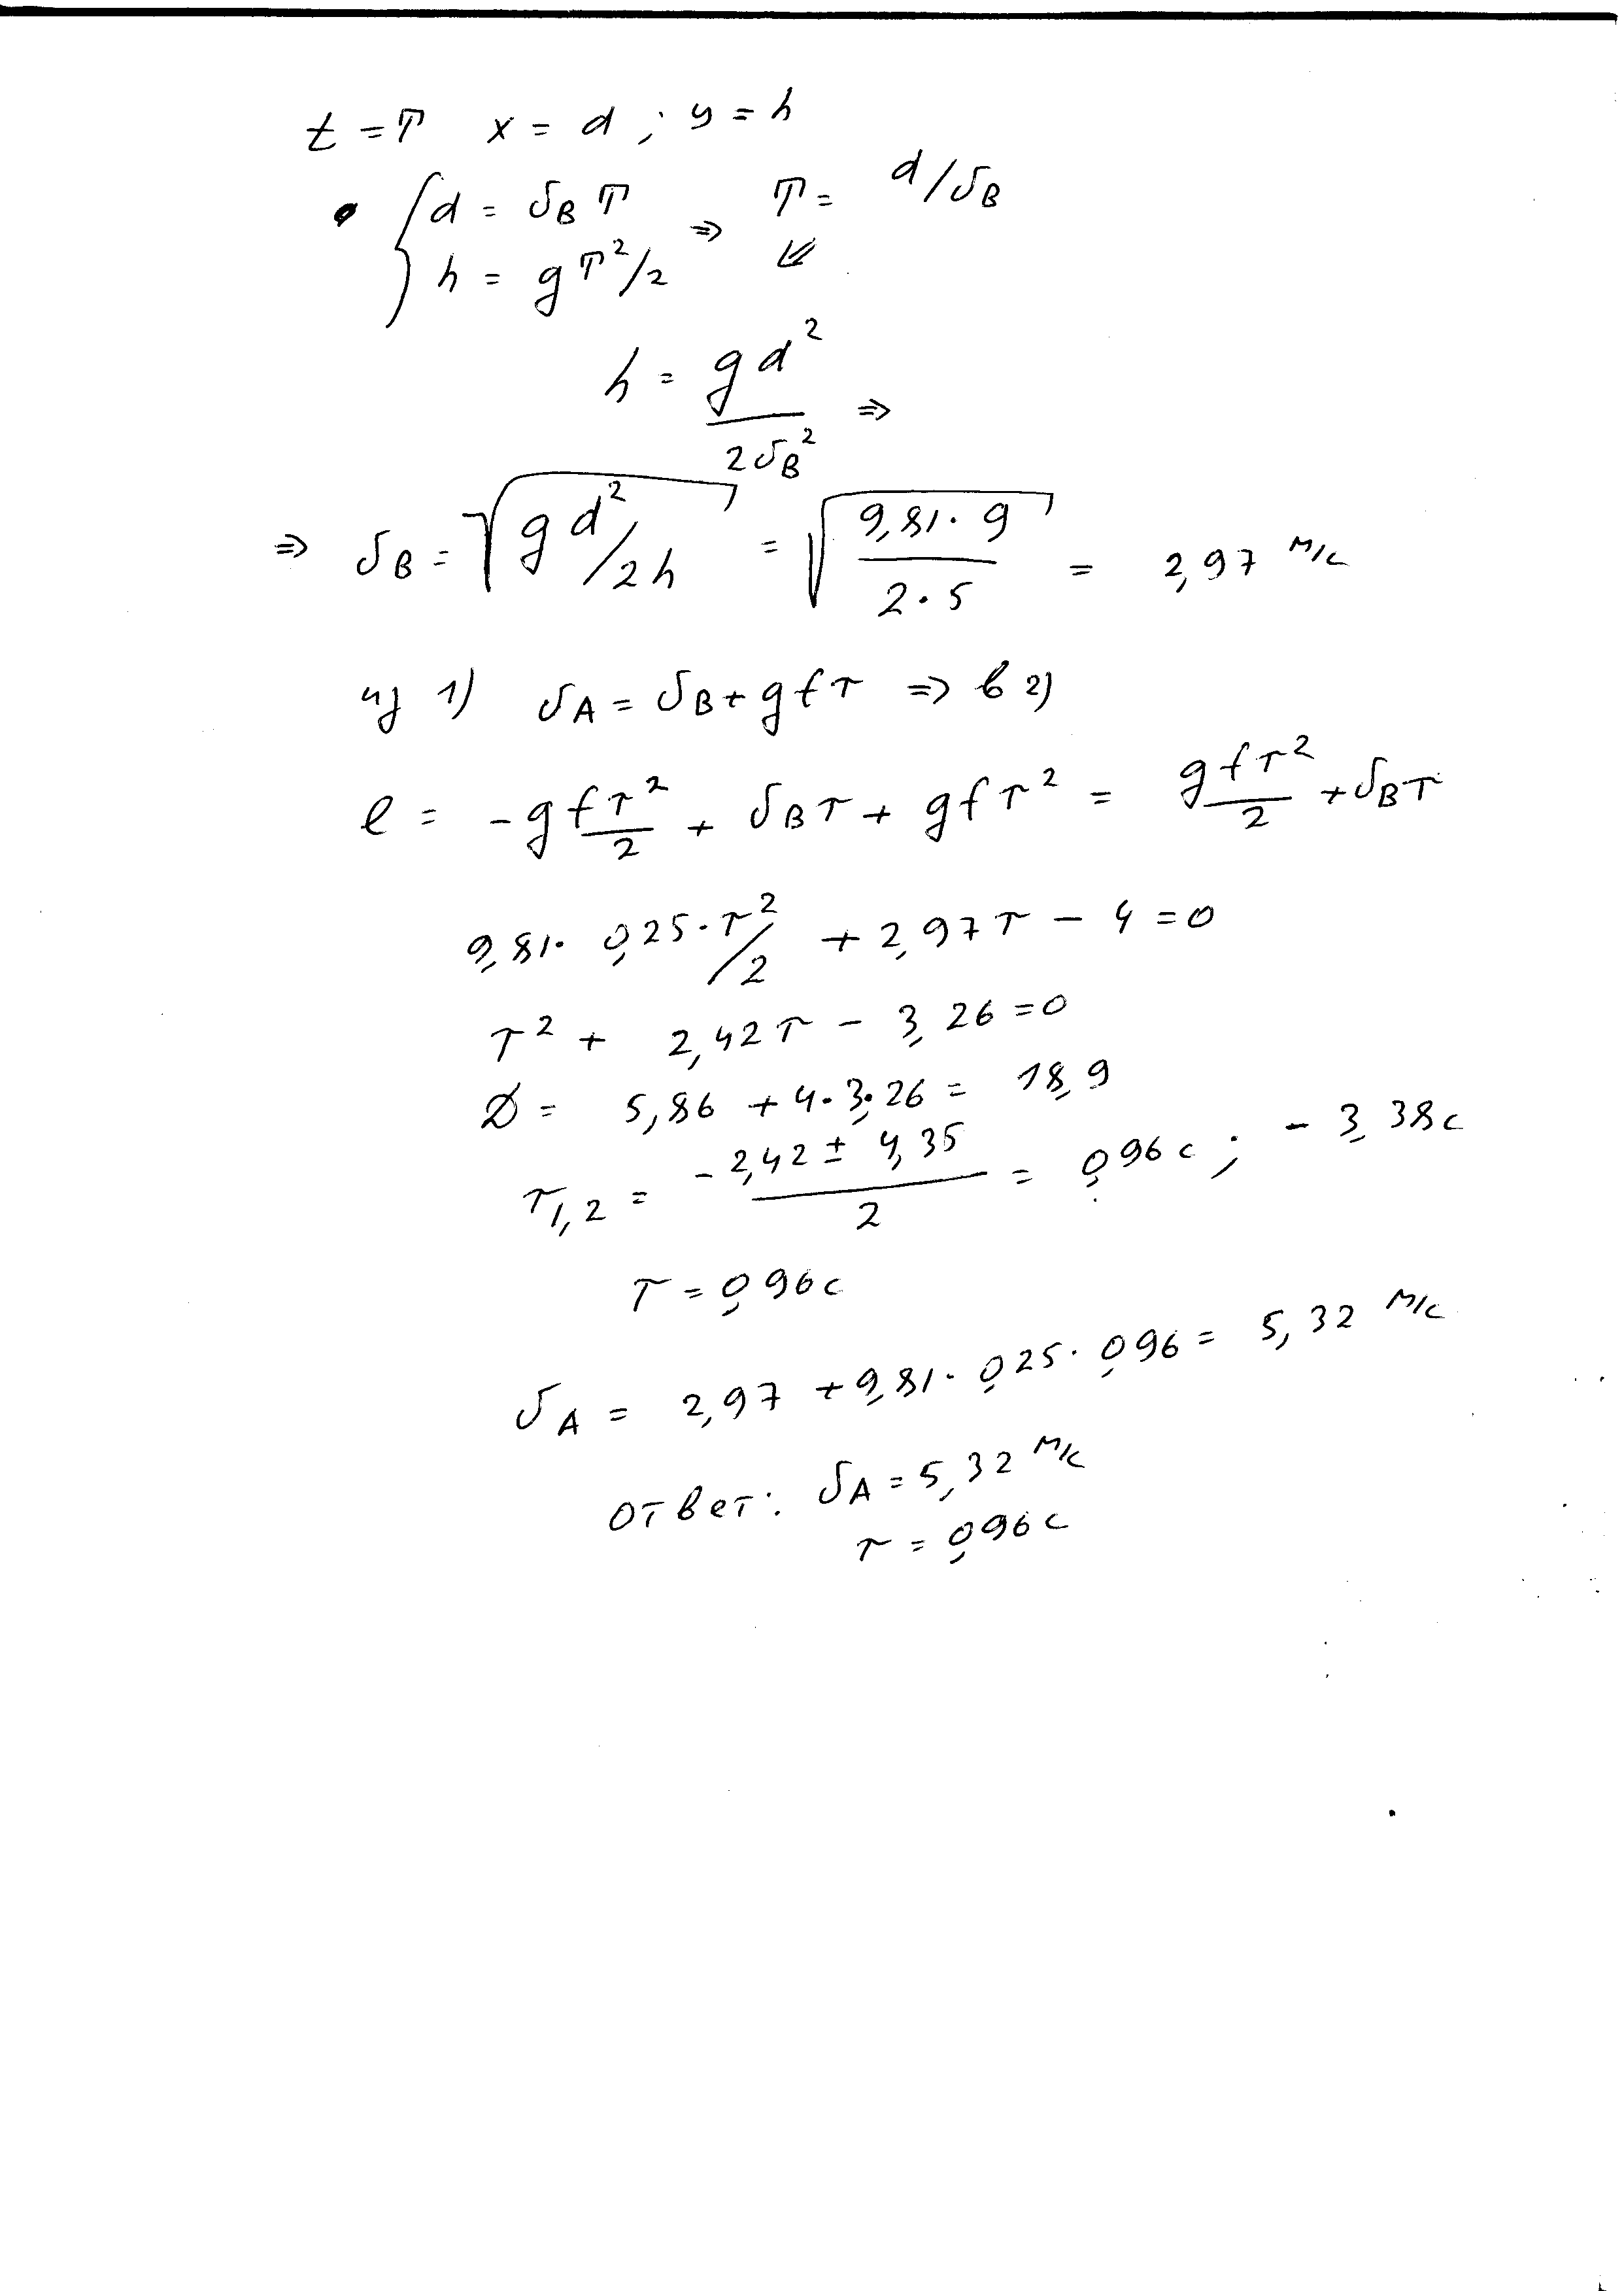 t = T x = d ; y = h
{ d = υ_B T ⇒ T = d/υ_B
h = gT²/2 ⇙
h = gd²/2υ_B² ⇒
⇒ υ_B = √(gd²/2h) = √(9,81·9/2·5) = 2,97 м/с
из 1) υ_A = υ_B + gfτ ⇒ в 2)
l = -gfτ²/2 + υ_Bτ + gfτ² = gfτ²/2 + υ_Bτ
9,81·0,25·τ²/2 + 2,97τ - 4 = 0
τ² + 2,42τ - 3,26 = 0
D = 5,86 + 4·3,26 = 18,9
τ1,2 = -2,42 ± 4,35/2 = 0,96 с ; - 3,38 с
τ = 0,96 с
υ_A = 2,97 + 9,81·0,25·0,96 = 5,32 м/с
ответ: υ_A = 5,32 м/с
τ = 0,96 с